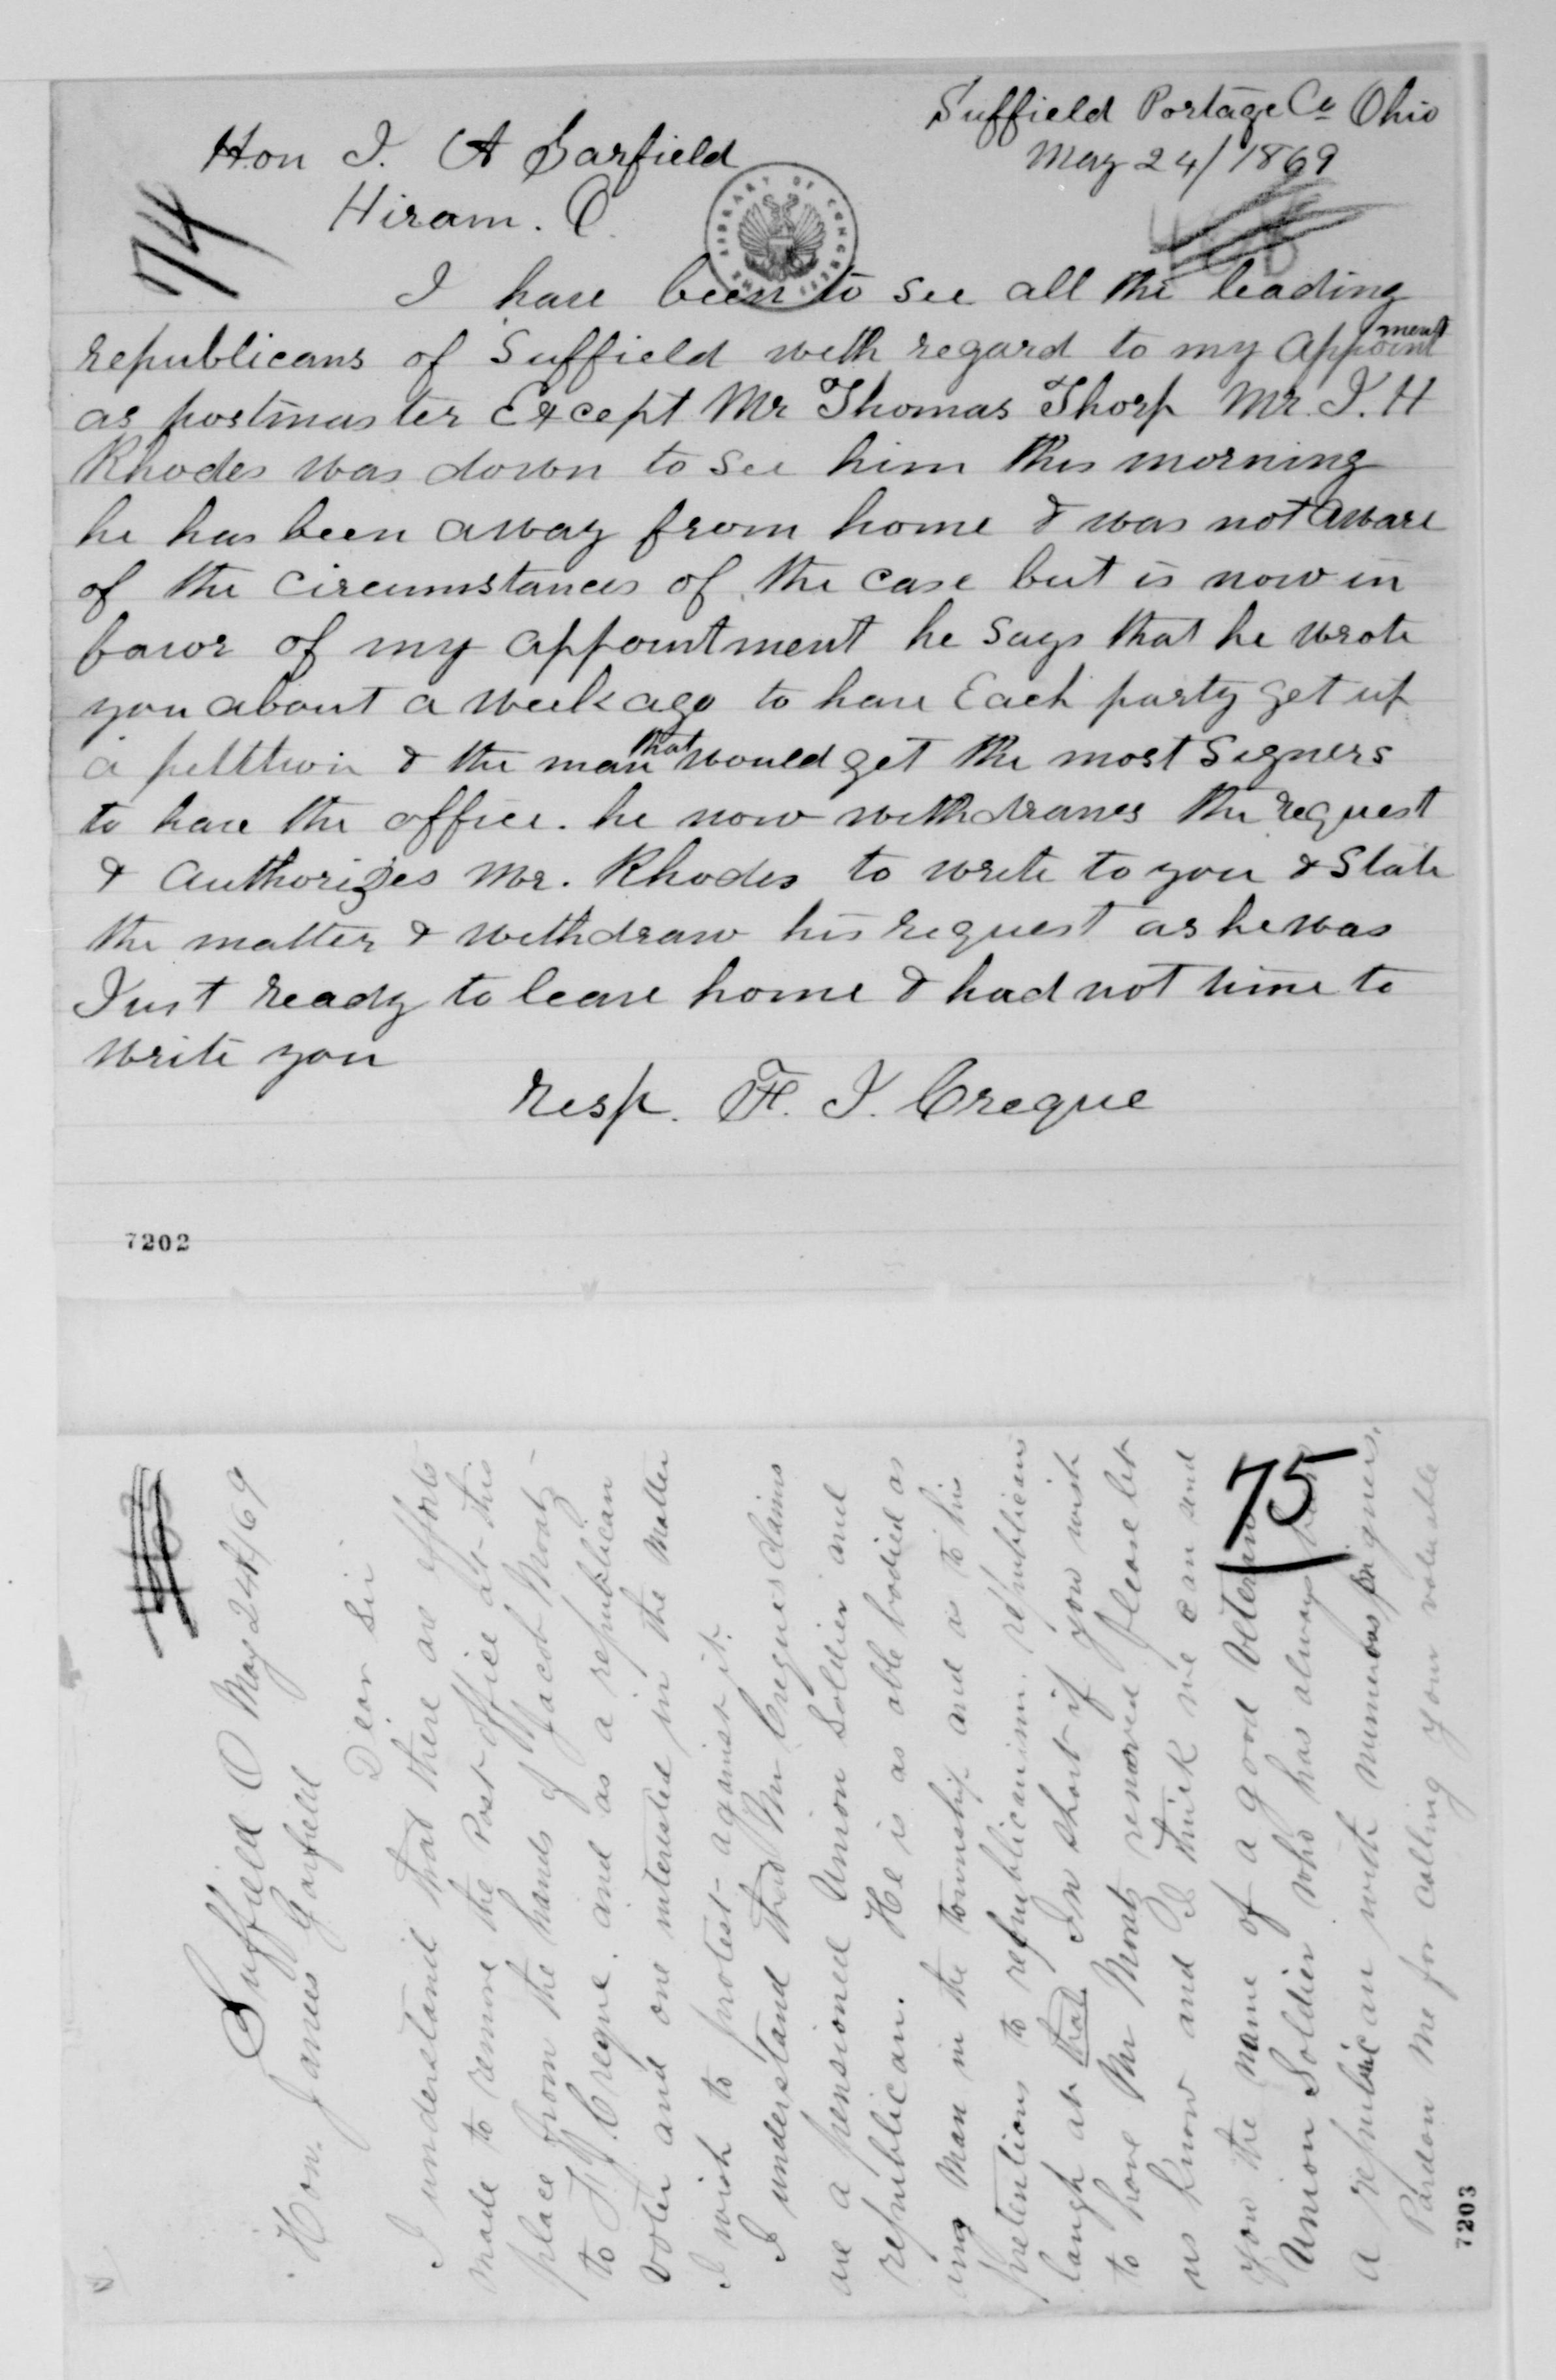 Suffield Portage Co Ohio
May 24/1869
Hon J. A Garfield
Hiram. O.
74
LIBRARY OF CONGRESS
I have been to see all the leading
republicans of Suffield with regard to my appointment
as postmaster Except Mr Thomas Thorp Mr. J. H
Rhodes was down to see him this morning
he has been away from home & was not aware
of the circumstances of the case but is now in
favor of my appointment he says that he wrote
you about a week ago to have Each party get up
a petition & the man that would get the most signers
to have the office. he now withdraws the request
& authorizes Mr. Rhodes to write to you & state
the matter & withdraw his request as he was
Just ready to leave home & had not time to
write you
Resp. F. J. Creque
7202
Suffield O May 24th/69
Hon. James Garfield
Dear Sir
I understand that there are efforts
made to remove the Post office at this
place from the hands of Jacob Montz
to F. J. Creque. and as a republican
voter and one interested in the matter
I wish to protest against it.
I understand that Mr Creques claims
are a pensioned Union Soldier and
republican. He is as able bodied as
any man in the township and as to his
pretentions to republicanism. republicans
laugh at that. In short if you wish
to have Mr Montz removed please let
us know and I think we can send
you the name of a good Veteran
Union Soldier who has always
a republican with numerous signers.
Pardon me for calling your valuable
75
7203